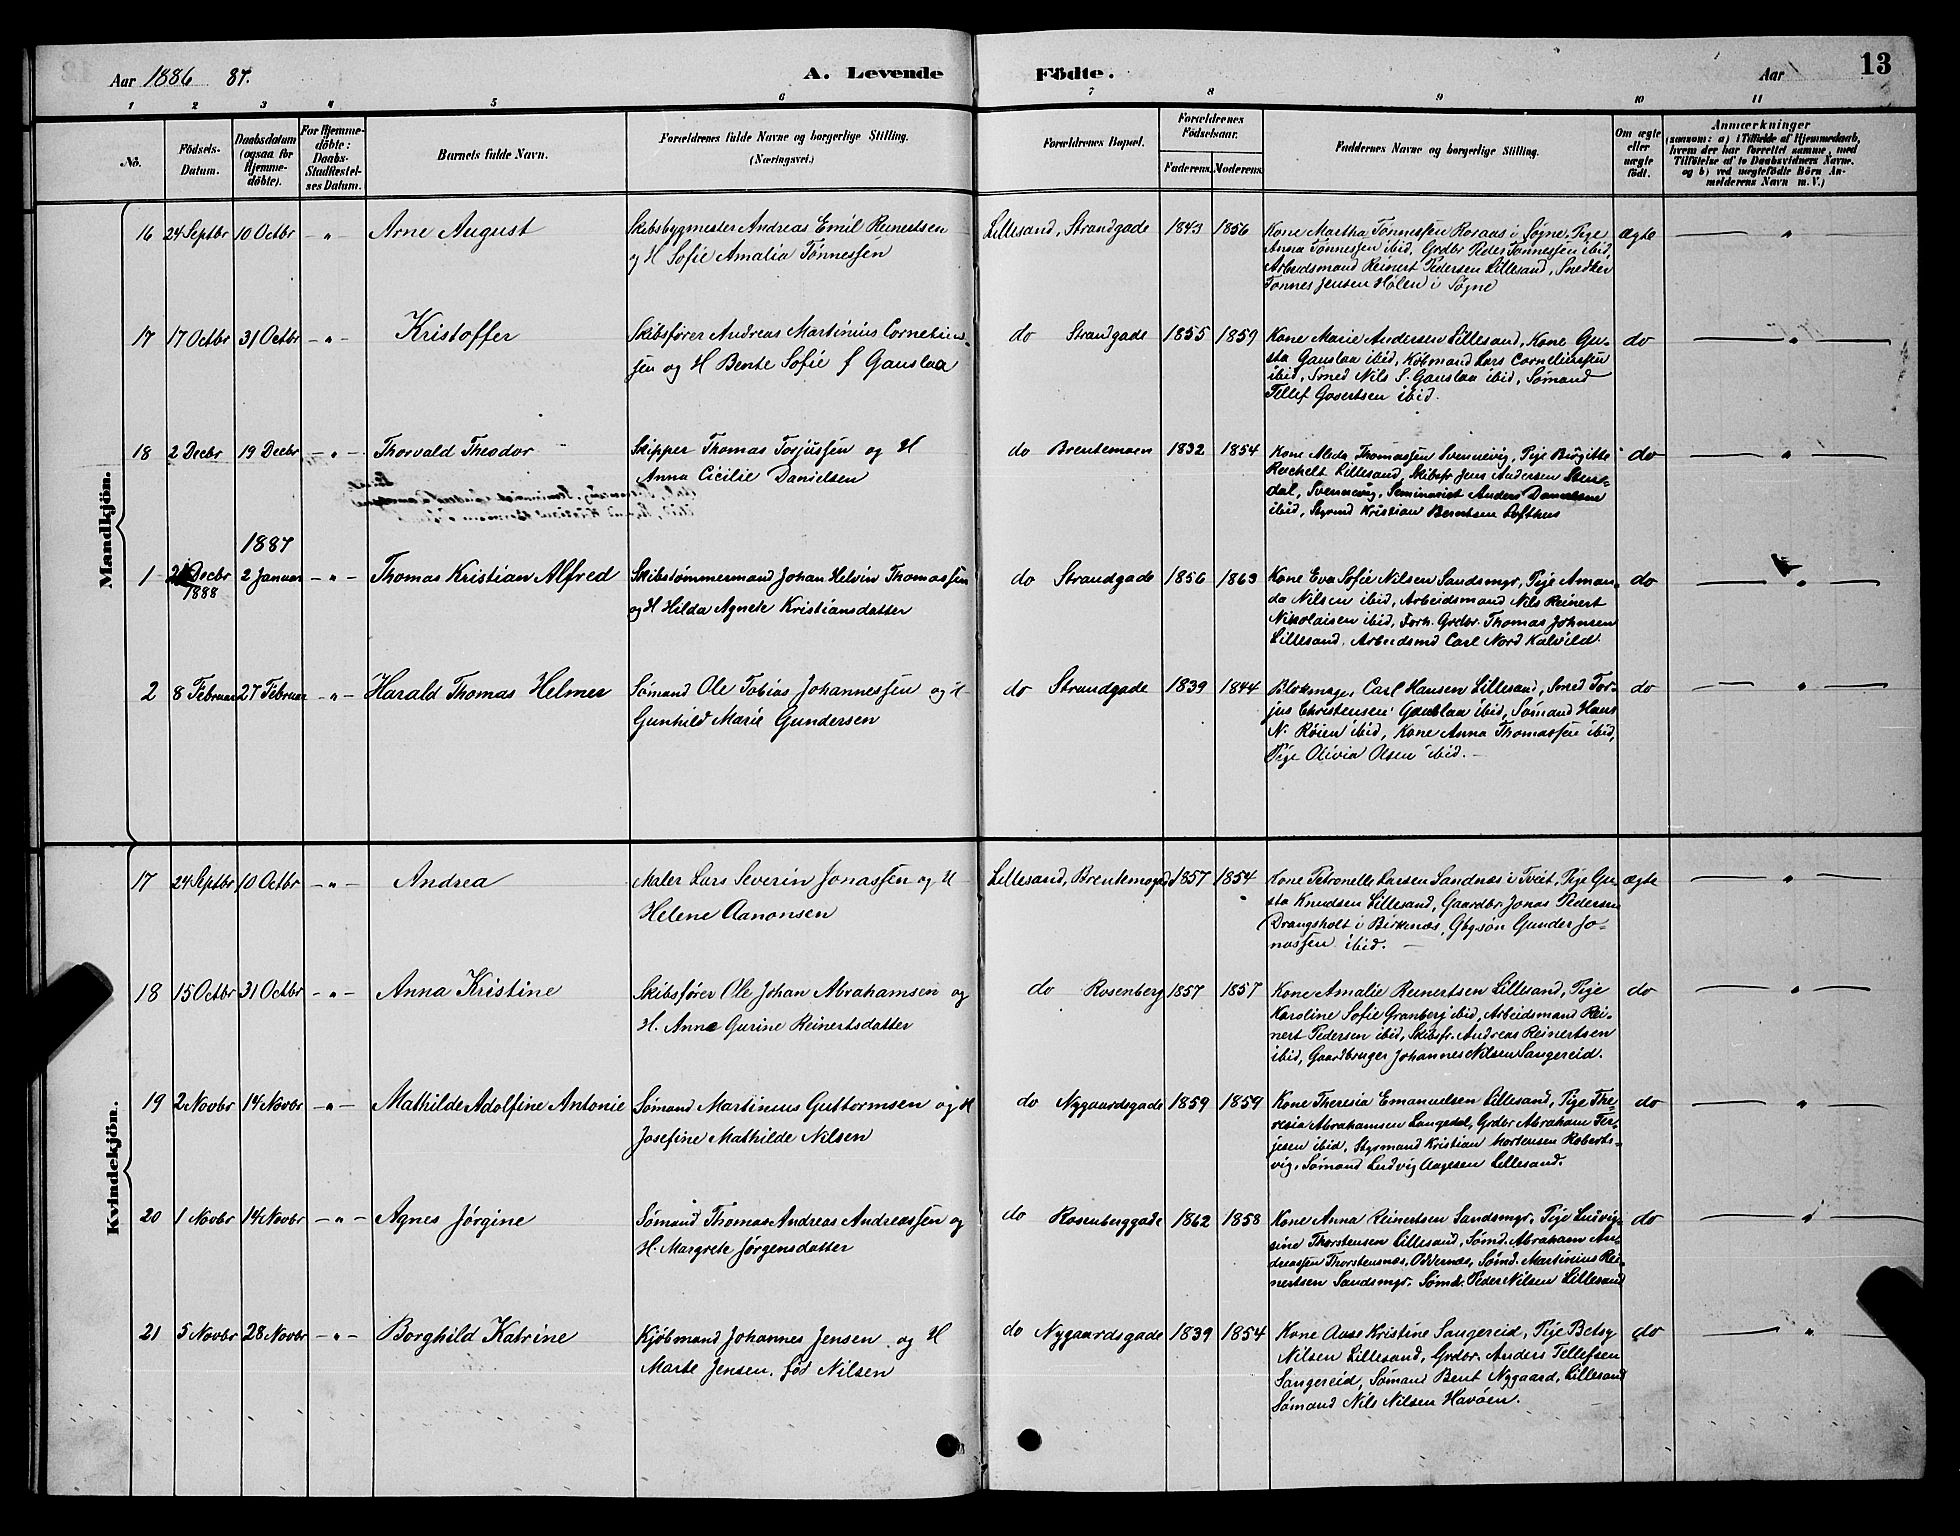 Aar 1886 87. A. Levende Födte. Aar 13
1 2 3 4 5 6 7 8 9 10 11
No.
Födsels-Datum.
Daabsdatum (ogsaa for Hjemme-döbte).
For Hjemme-döbte: Daabs-Stadfæstel-ses Datum.
Barnets fulde Navn.
Forældrenes fulde Navne og borgerlige Stilling. (Næringsvei.)
Forældrenes Bopæl.
Forældrenes Födselsaar.
Faderens. Moderens.
Faddernes Navne og borgerlige Stilling.
Om ægte eller uægte födt.
Anmærkninger
(saasom: a) i Tilfælde af Hjemmedaab,
hvem der har forrettet samme, med
Tilföielse af to Daabsvidners Navne.
og b) ved uægtefödte Börn An-
melderens Navn m. V.)
Mandkjön.
16 24 Septbr 10 Octbr - " - Arne August
Skibsbygmester Andreas Emil Reinertsen
og H Sofie Amalia Tönnessen
Lillesand, Strandgade 1843 1856
Kone Martha Tønnessen Roraas i Søgne, Pige
Anna Tønnessen ibid, Grdbr Peder Tønnessen ibid,
Arbeidsmand Reinert Pedersen Lillesand, Snedker
Tønnes Jensen Hølen i Søgne
ægte — " —
17 17 Octbr 31 Octbr - " - Kristoffer
Skibsfører Andreas Martinius Cornelius-
sen og H Bente Sofie f Gauslaa
do Strandgade 1855 1859
Kone Marie Andersen Lillesand, Kone Gu-
sta Gauslaa ibid, Kobmand Lars Corneliussen
ibid, Smed Nils S. Gauslaa ibid, Sømand
Tellef Govertsen ibid.
do — " —
18 2 Decbr 19 Decbr - " - Thorvald Theodor
Skipper Thomas Torjussen og H
Anna Cicilie Danielsen
do Brentemoen 1832 1854
Kone Alida Thomassen Svennevig, Pige Birgitte
Reichelt Lillesand, Skibsfr Jens Andersen Sten-
dal, Svennevig, Seminarist Anders Danielsen
ibid, Styrmd Kristian Berntsen Lofthus
do — " —
1887
1 21 Decbr 1888 2 Januar - " - Thomas Kristian Alfred
Skibstømmermand Johan Helvin Thomassen
og H Hilda Agnete Kristiansdatter
do Strandgade 1856 1863
Kone Eva Sofie Nilsen Sandsmyr, Pige Aman-
da Nilsen ibid, Arbeidsmand Nils Reinert
Nikolaisen ibid, Forh. Grdbr. Thomas Johnsen
Lillesand, Arbeidsmd Carl Nord Kalvild.
do — " —
2 8 Februar 27 Februar - " - Harald Thomas Helmer
Sømand Ole Tobias Johannessen og H
Gunhild Marie Gundersen
do Strandgade 1839 1844
Blokmager Carl Hansen Lillesand, Smed Tor-
jus Christensen Gauslaa ibid, Sømand Hans
N. Røien ibid, Kone Anna Thomassen ibid,
Pige Olivia Olsen ibid. -
do — " —
Kvindekjön.
17 24 Septbr 10 Octbr - " - Andrea
Maler Lars Severin Jonassen og H
Helene Aanonsen
Lillesand, Brentemogade 1857 1854
Kone Petronelle Larsen Sandnæs i Tveit, Pige Gu-
sta Knudsen Lillesand, Gaardbr. Jonas Pedersen
Drangsholt i Birkenæs, Gbgsøn Gunder Jo-
nassen ibid. -
ægte — " —
18 15 Octbr 31 Octbr - " - Anna Kristine
Skibsfører Ole Johan Abrahamsen og
H. Anne Gurine Reinertsdatter
do Rosenberg 1857 1857
Kone Amalie Reinertsen Lillesand, Pige
Karoline Sofie Granberj ibid, Arbeidsmand Rei-
nert Pedersen ibid, Skibsfr. Andreas Reinertsen
ibid, Gaardbruger Johannes Nilsen Sangereid.
do — " —
19 2 Novbr 14 Novbr - " - Mathilde Adolfine Antonie
Sømand Martinius Guttormsen og H
Josefine Mathilde Nilsen
do Nygaardsgade 1859 1859
Kone Theresia Emanuelsen Lillesand, Pige The-
resia Abrahamsen Langedal, Grdbr Abraham Ter-
jesen ibid, Styrmand Kristian Mortensen Roberts-
vig, Sømand Ludvig Aagesen Lillesand.
do — " —
20 1 Novbr 14 Novbr - " - Agnes Jørgine
Sømand Thomas Andreas Andreassen og
H. Margrete Jørgensdatter
do Rosenberggade 1862 1858
Kone Anna Reinertsen Sandsmyr, Pige Ludvig-
sine Thorstensen Lillesand, Sømd. Abraham An-
dreassen Thorstensnæs, Oddernæs, Sømd. Martinius Rei-
nertsen Sandsmyr. Sømd. Peder Nilsen Lillesand
do — " —
21 5 Novbr 28 Novbr - " - Borghild Katrine
Kjøbmand Johannes Jensen og H
Marte Jensen, fød Nilsen
do Nygaardsgade 1839 1854
Kone Aase Kristine Sangereid, Pige Betsy
Nilsen Lillesand, Grdbr. Anders Tellefsen
Sangereid, Sømand Bent Nygaard, Lillesand
Sømand Nils Nilsen Havøen.
do — " —